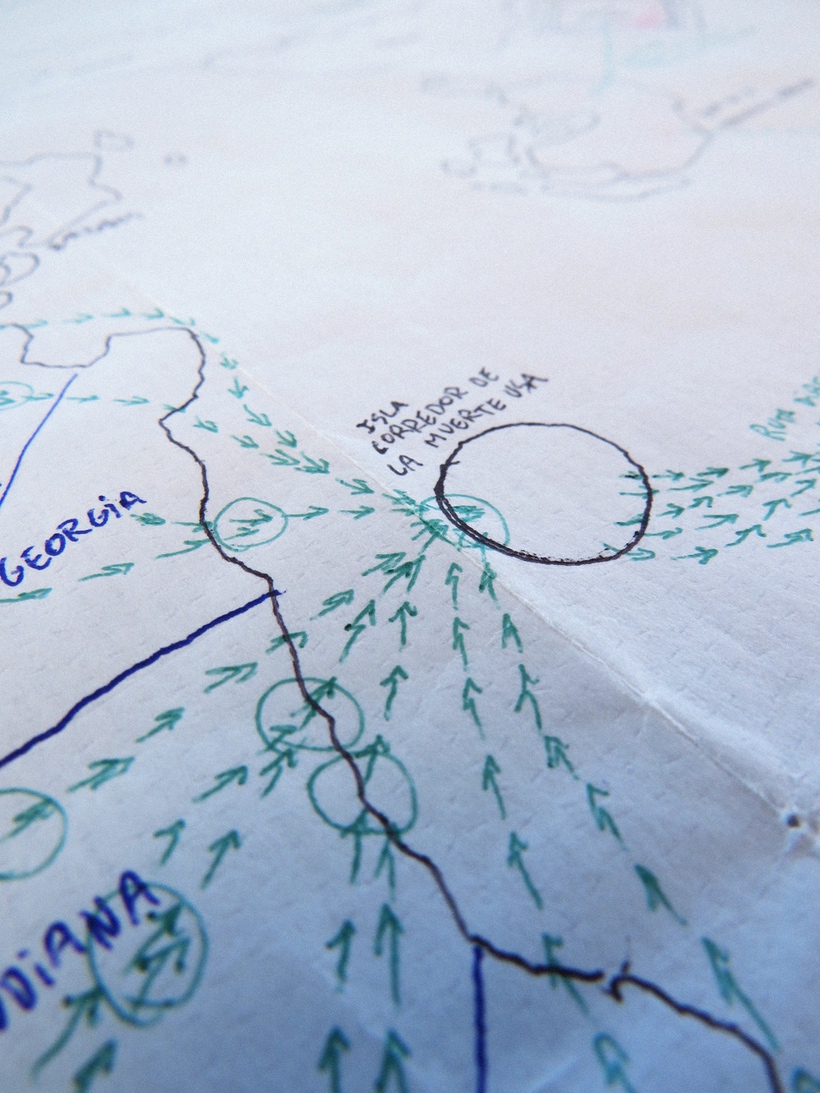 ISLA
CORREDOR DE
LA MUERTE USA
GEORGIA
DIANA